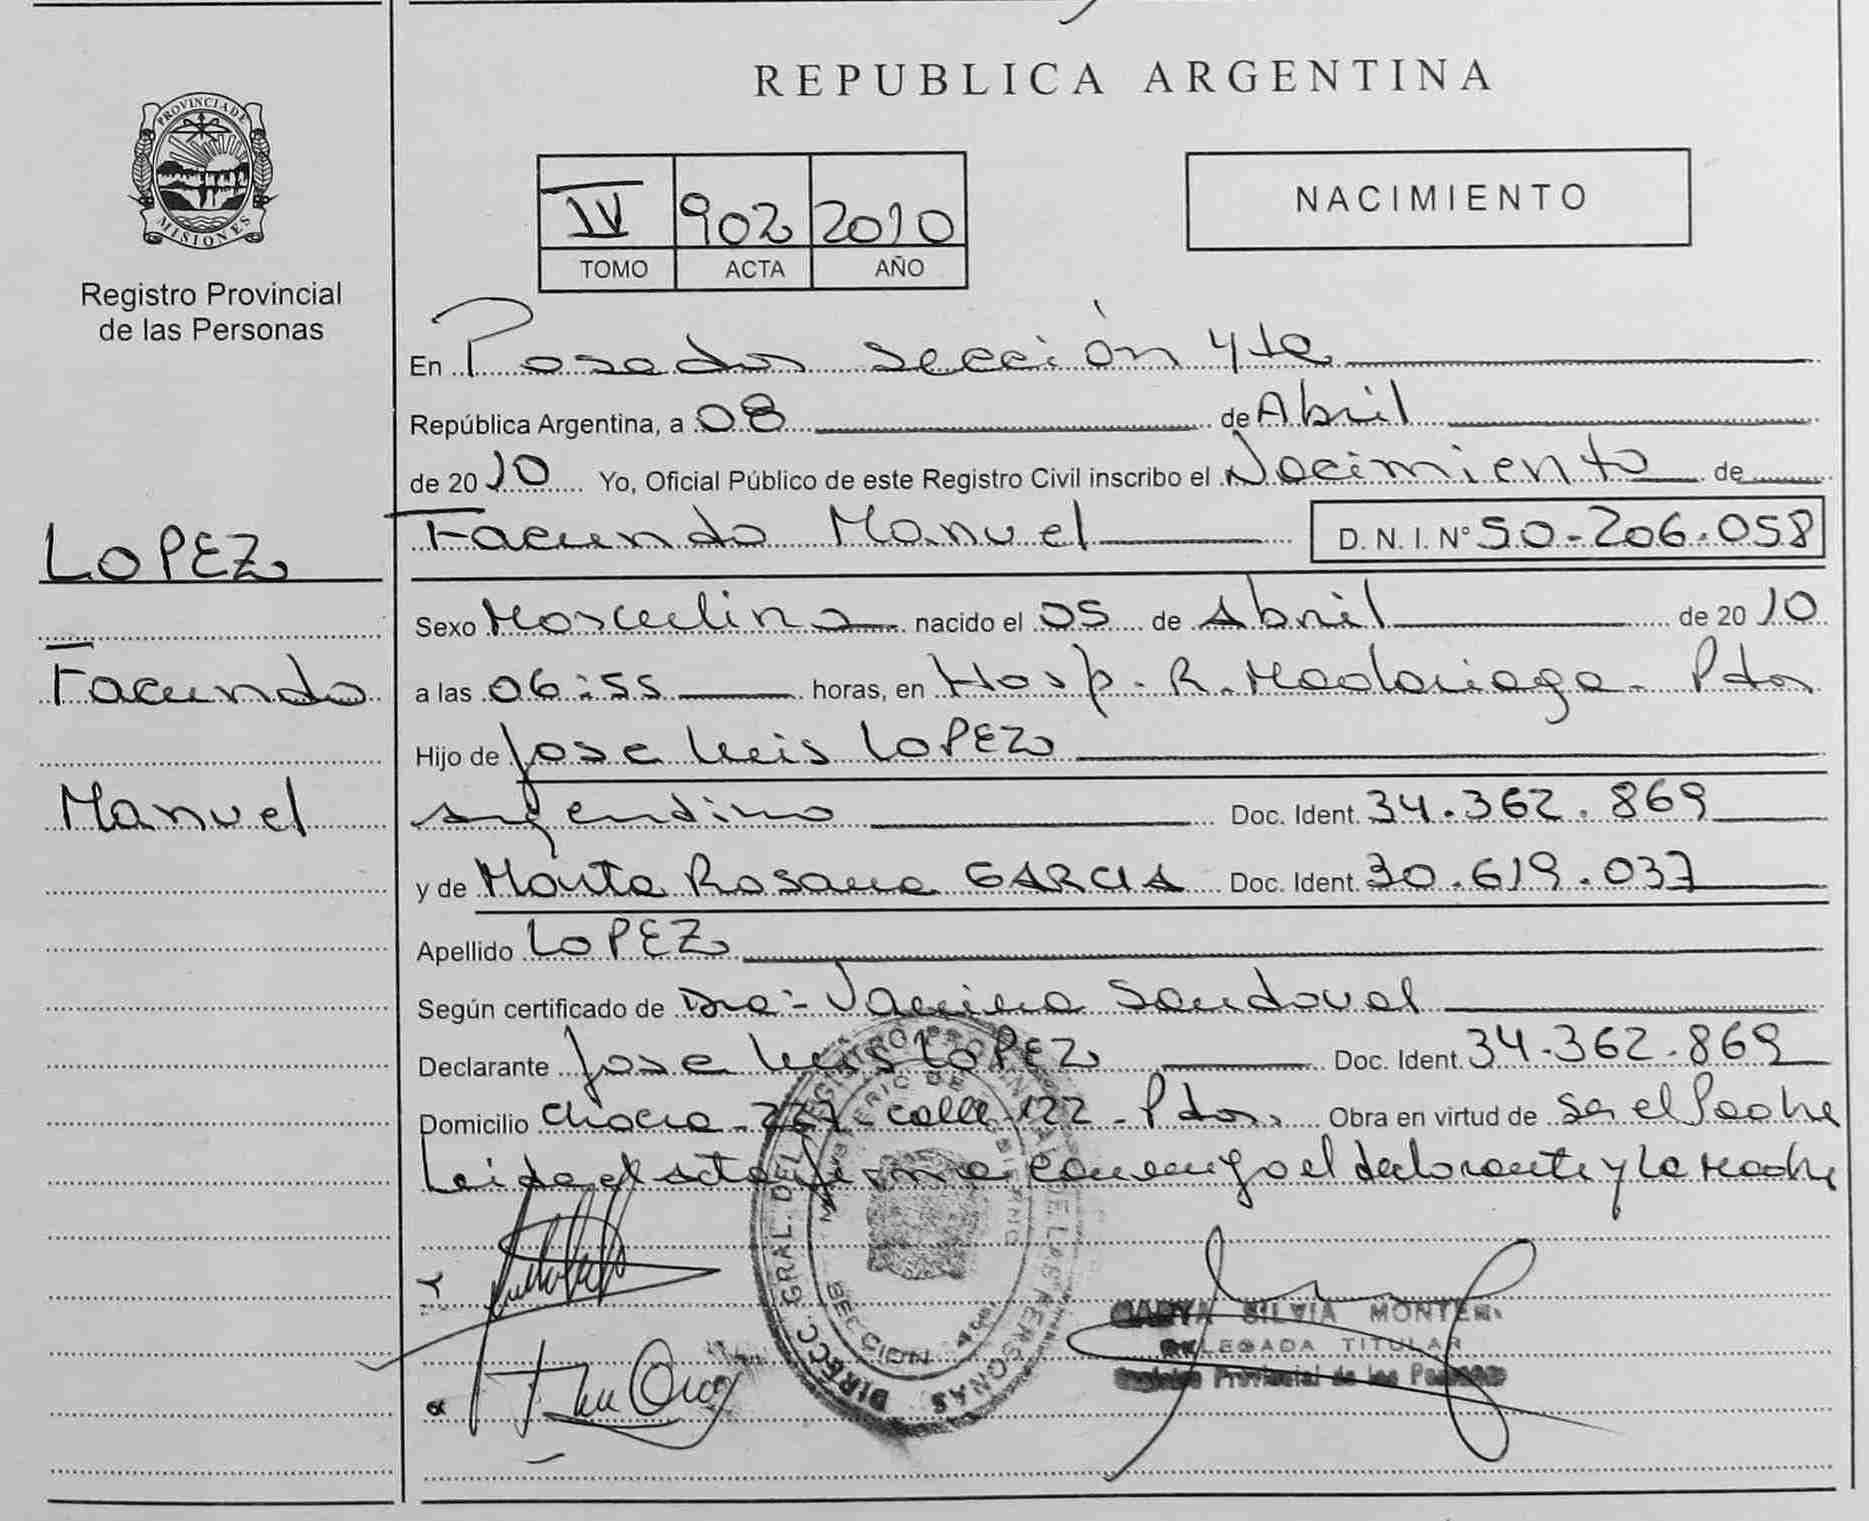 PROVINCIA DE
MISIONES
Registro Provincial
de las Personas
LOPEZ
Facundo
Manuel
REPUBLICA ARGENTINA
IV 902 2010
TOMO ACTA AÑO
NACIMIENTO
En Posadas sección 4ta
República Argentina, a 08 de Abril
de 2010 Yo, Oficial Público de este Registro Civil inscribo el Nacimiento de
Facundo Manuel D. N. I. Nº 50-206.058
Sexo Masculino nacido el 05 de Abril de 2010
a las 06:55 horas, en Hosp. R. Madariaga - Pdas
Hijo de Jose Luis LOPEZ
argentino Doc. Ident. 34.362.869
y de Rosana GARCIA Doc. Ident. 30.619.037
Apellido LOPEZ
Según certificado de Dra: Sandoval
Declarante Jose Luis LOPEZ Doc. Ident. 34.362.869
Domicilio Chacra 227 calle 122 - Pdas. Obra en virtud de Ser el Padre
Leida el acta firma conmigo el declarante y la Madre
DIRECC. GRAL. DEL REGISTRO PROVINCIAL DE LAS PERSONAS
SILVIA MONTE
DELEGADA TITULAR
Registro Provincial de las Personas